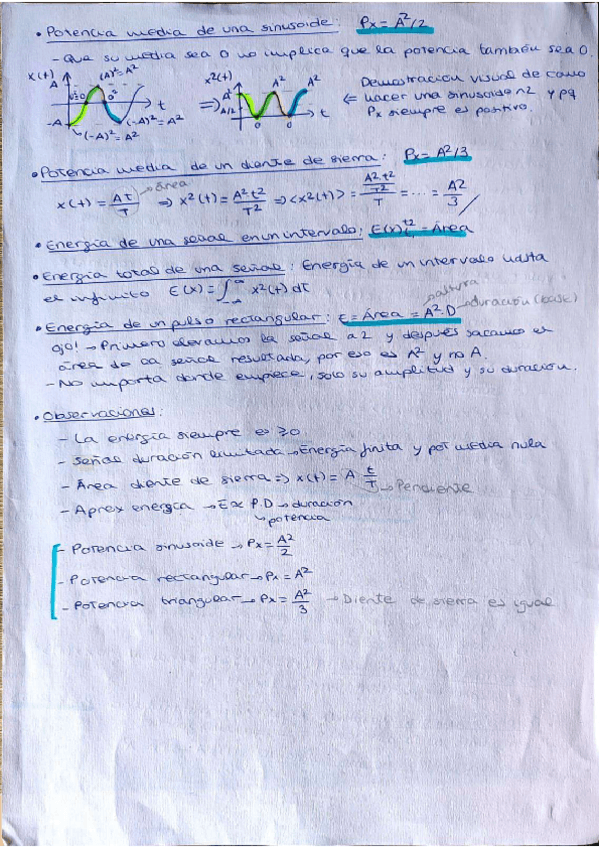 • Potencia media de una sinusoide: Px = A²/2
- Que su media sea 0 no implica que la potencia también sea 0.
x(t) A (A)² = A² 0²=0 0² t -A (-A)² = A² (-A)² = A²
⇒ x²(t) A² A/2 A² A² 0 0 t
⇐ Demostración visual de como hacer una sinusoide ^2 y pq Px siempre es positivo.
• Potencia media de un diente de sierra: Px = A²/3
x(t) = At/T → área ⇒ x²(t) = A²t²/T² ⇒ <x²(t)> = (A²t²/T²)/T = ... = A²/3
• Energía de una señal en un intervalo: = Área
• Energía total de una señal: Energía de un intervalo hasta
el infinito E(x) = ∫_{-∞}^{∞} x²(t) dt
• Energía de un pulso rectangular: E = Área = A²·D → altura → duración (base)
ojo! → Primero elevamos la señal a 2 y después sacamos el
área de la señal resultada, por eso es A² y no A.
- No importa donde empiece, solo su amplitud y su duración.
• Observaciones:
- La energía siempre es ≥0
- Señal duración limitada → Energía finita y pot media nula
- Área diente de sierra ⇒ x(t) = A t/T → Pendiente
- Aprox energía → E ∝ P.D → duración
↳ potencia
- Potencia sinusoide → Px = A²/2
- Potencia rectangular → Px = A²
- Potencia triangular → Px = A²/3 → Diente de sierra es igual